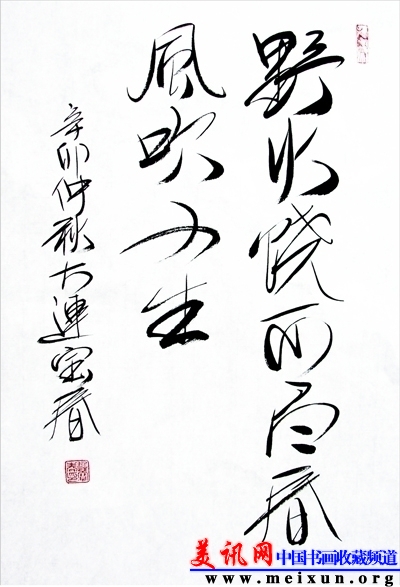 野火烧不尽春
風吹又生
辛卯仲秋大連春
美讯网中国书画收藏频道
www.meixun.org